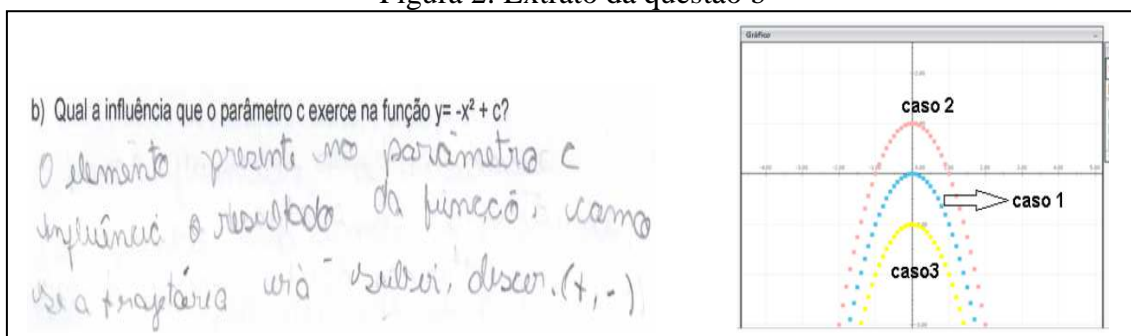 Figura 2: Extrato da questão b
b) Qual a influência que o parâmetro c exerce na função y= -x² + c?
O elemento presente no parâmetro c
influência o resultado da funçcô, como
se a trajetória irà subir, descer. (+, -)
Gráfico
caso 2
caso 1
caso3